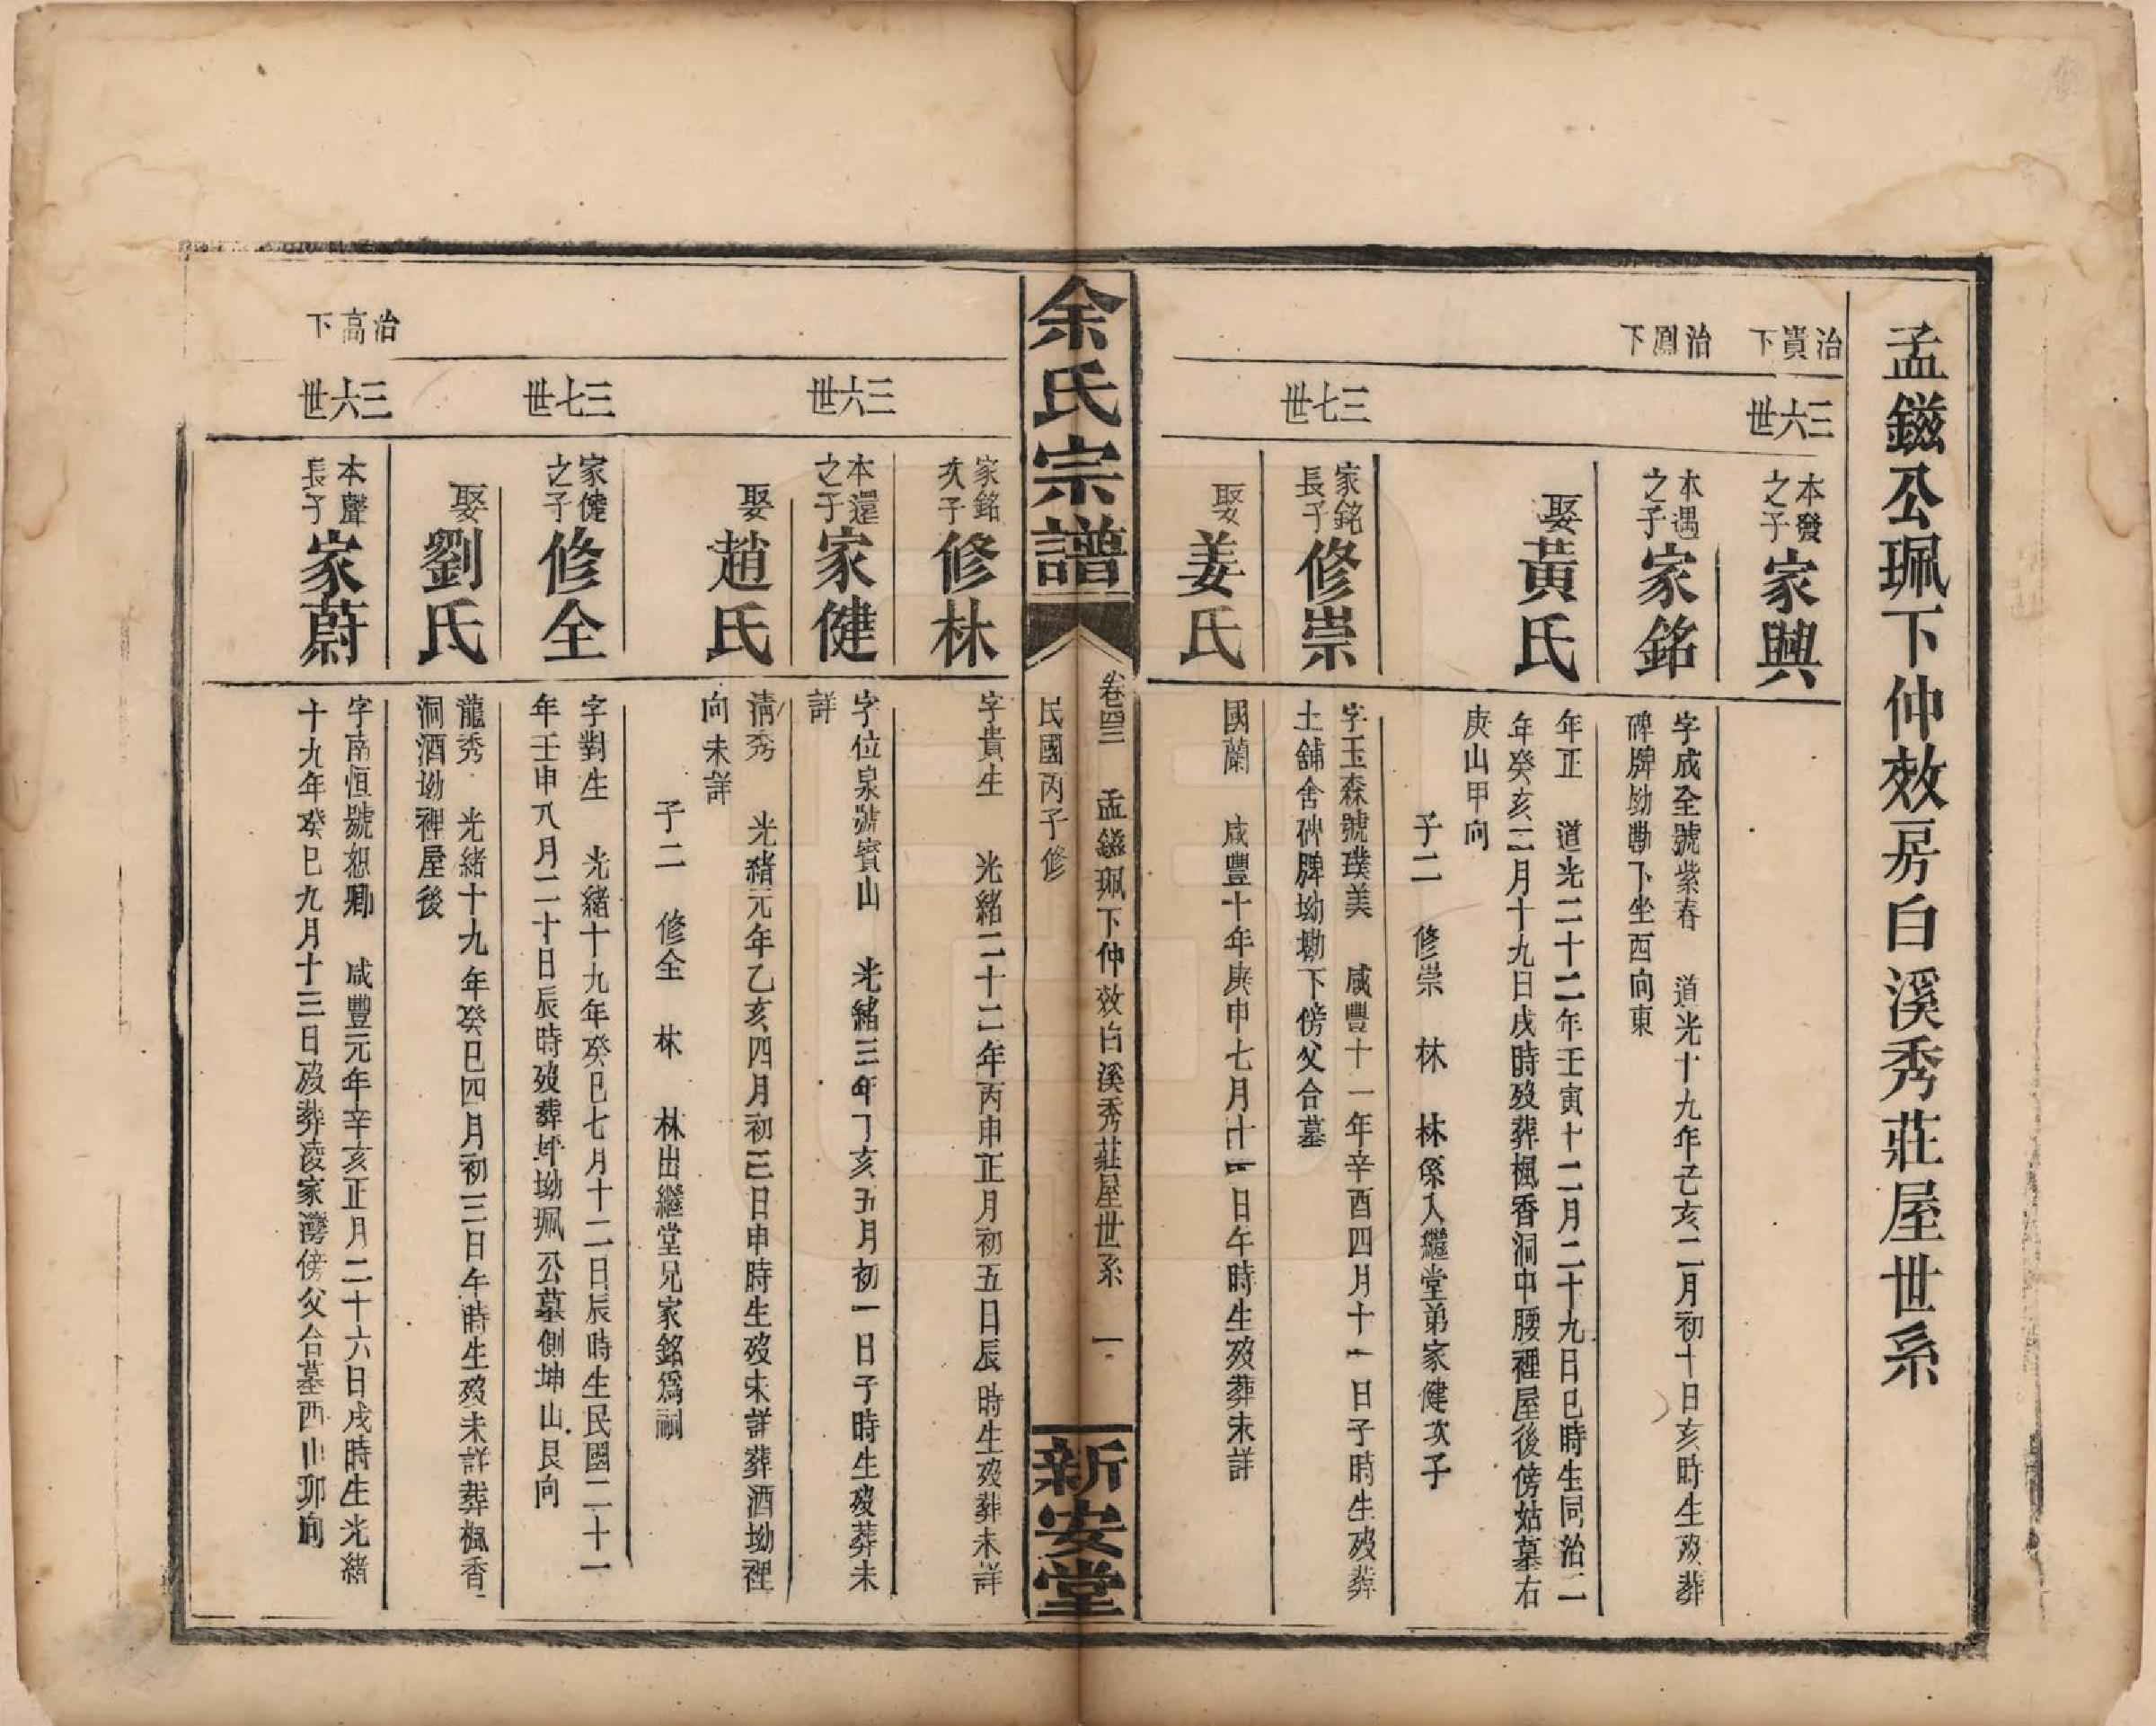 孟鎡公珮下仲效房白溪秀莊屋世系
治貴下
三六世
本發
之子
家興
治鳳下
本遇
之子
家銘
字成全號紫春　道光十九年己亥二月初十日亥時生歿葬
碑牌坳勘下坐西向東
娶黃氏
年正　道光二十二年壬寅十二月二十九日巳時生同治二
年癸亥二月十九日戌時歿葬楓香洞中腰裡屋後傍姑墓右
庚山甲向
子二　修崇　林　林係入繼堂弟家健次子
三七世
家銘
長子
修崇
字玉森號璞美　咸豐十一年辛酉四月十一日子時生歿葬
土舖舍碑牌坳勘下傍父合墓
娶姜氏
國蘭　咸豐十年庚申七月十一日午時生歿葬未詳
余氏宗譜
卷四三　孟鎡珮下仲效白溪秀莊屋世系　一
民國丙子修
新安堂
家銘
次子
修林
字貴生　光緒二十二年丙申正月初五日辰時生歿葬未詳
三六世
本還
之子
家健
字位泉號賓山　光緒三年丁亥五月初一日子時生歿葬未
詳
娶趙氏
清秀　光緒元年乙亥四月初三日申時生歿未詳葬酒坳裡
向未詳
子二　修全　林　林出繼堂兄家銘爲嗣
三七世
家健
之子
修全
字對生　光緒十九年癸巳七月十二日辰時生民國二十一
年壬申八月二十日辰時歿葬坪坳珮公墓側坤山艮向
娶劉氏
龍秀　光緒十九年癸巳四月初三日午時生歿未詳葬楓香
洞酒坳裡屋後
治高下
三六世
本聲
長子
家蔚
字南恒號恕卿　咸豐元年辛亥正月二十六日戌時生光緒
十九年癸巳九月十三日歿葬淩家灣傍父合墓酉山卯向